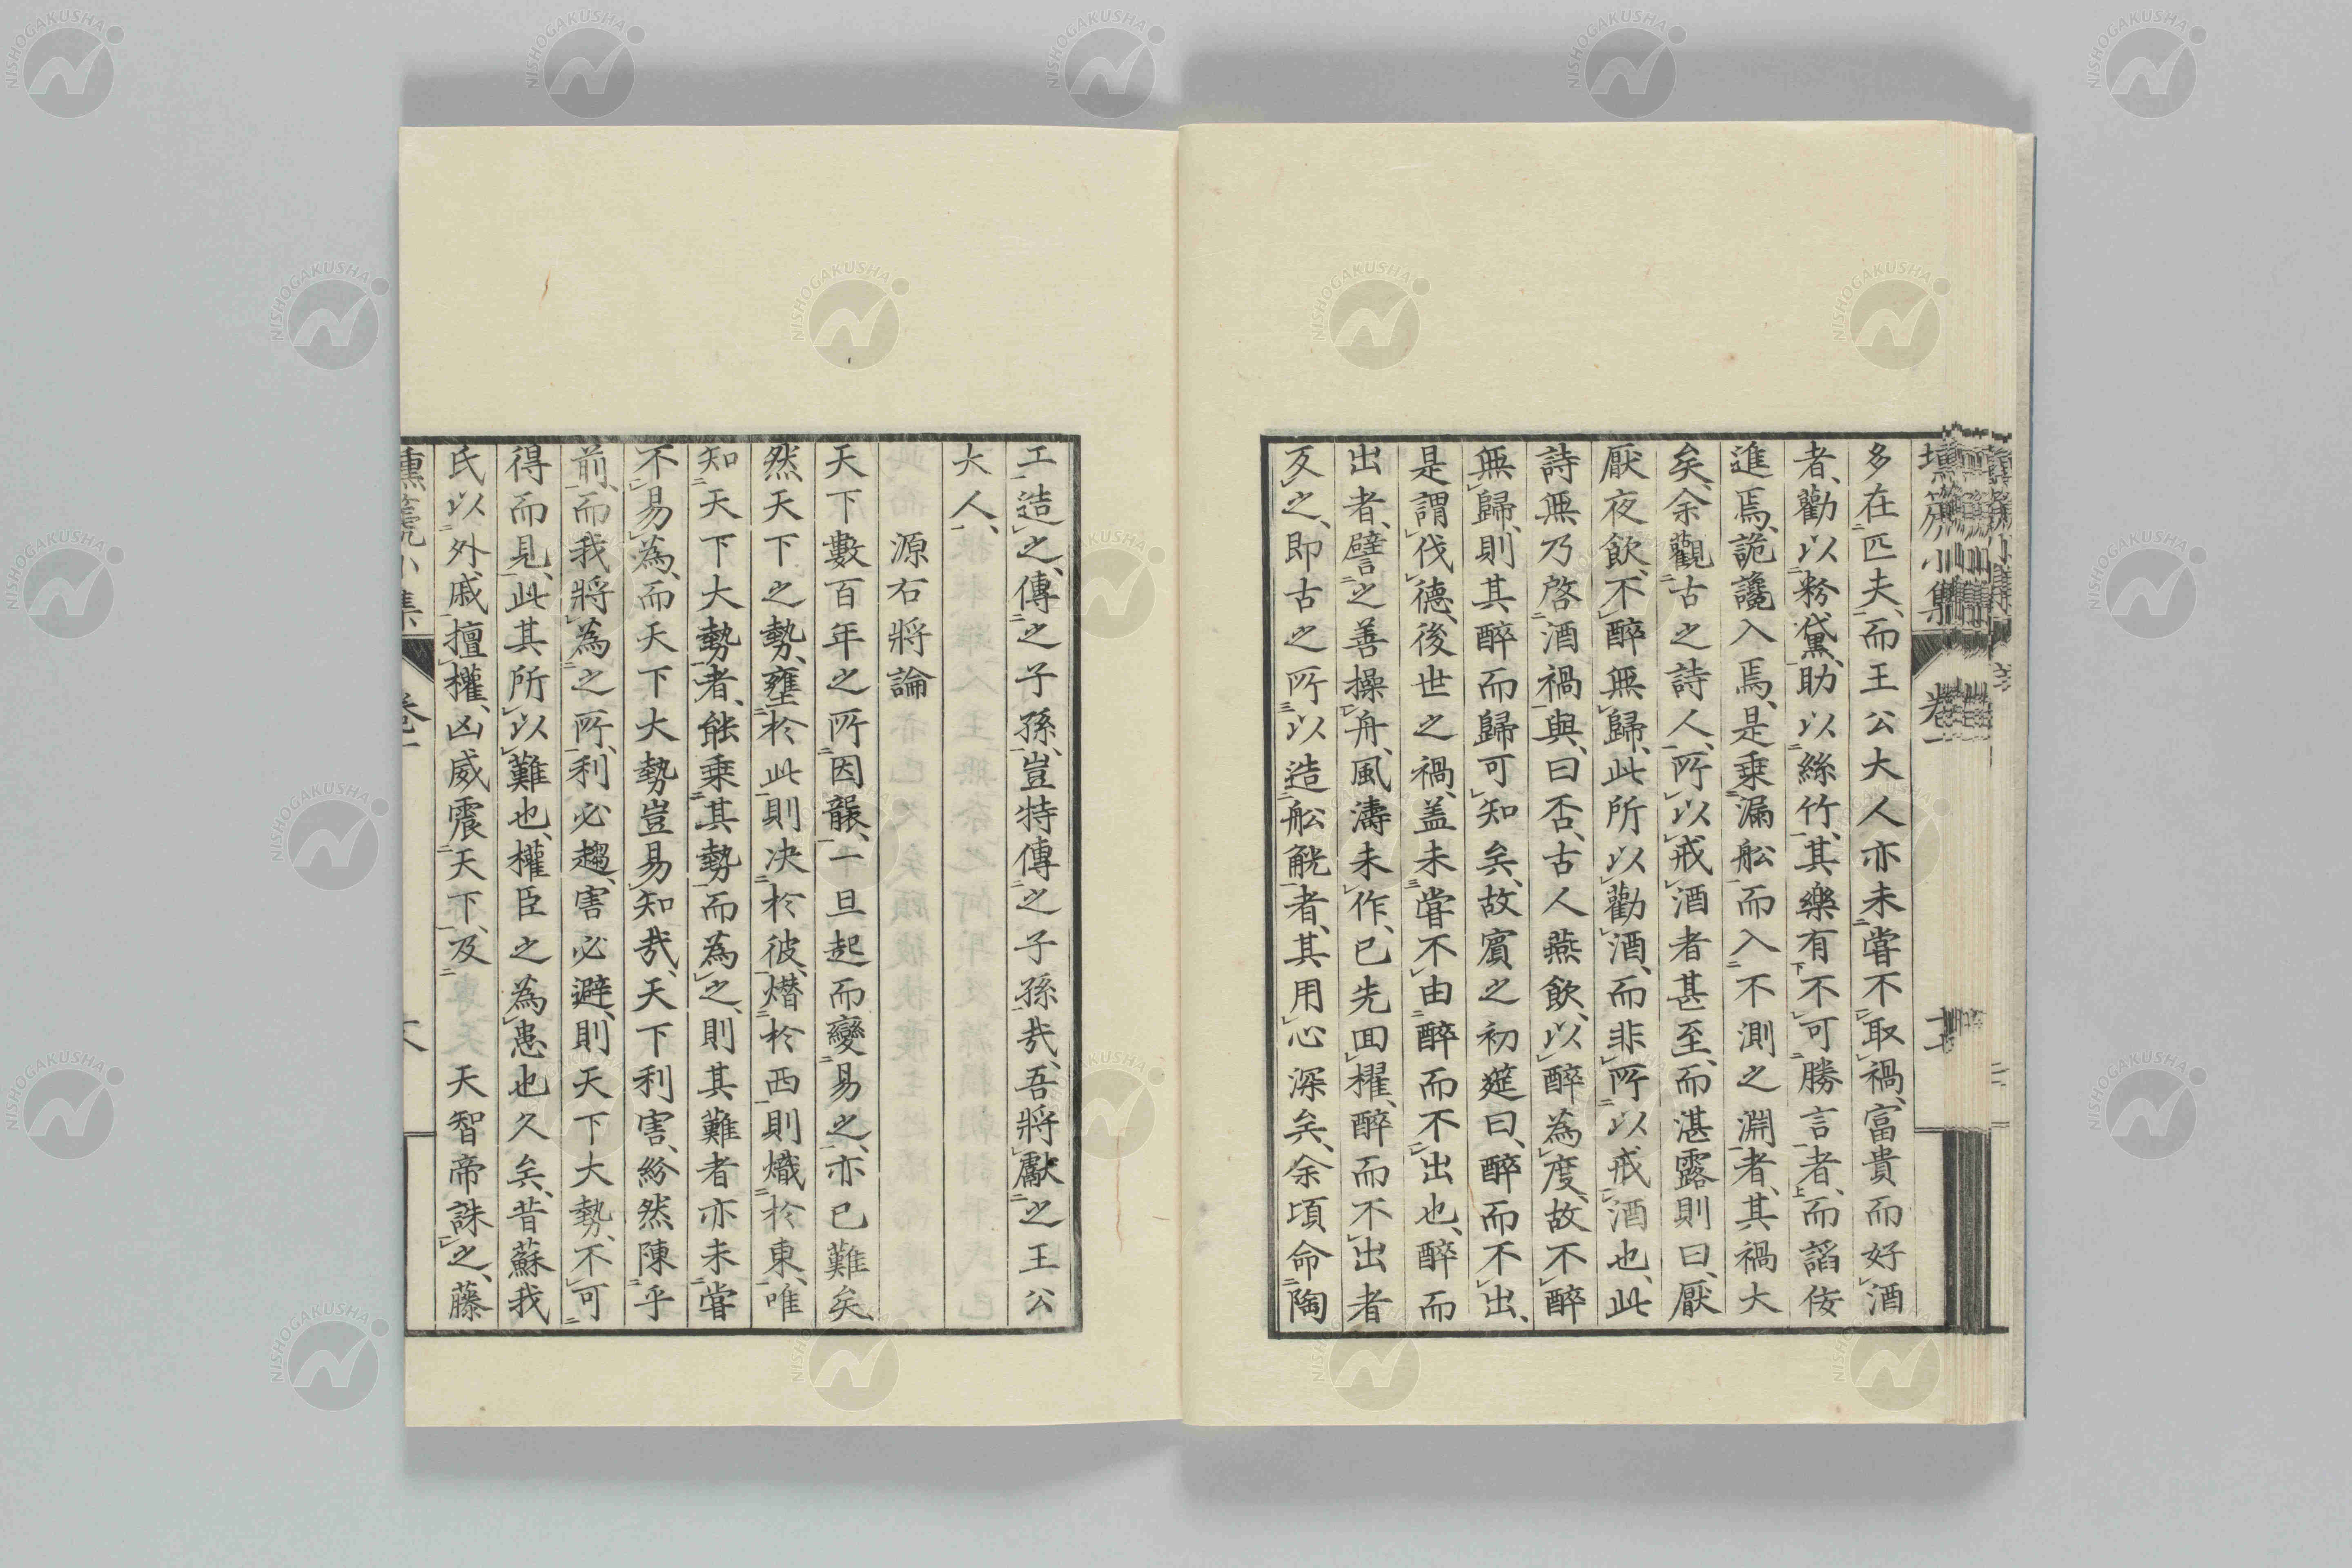 多在匹夫、而王公大人亦未嘗不取禍、富貴而好酒
者、勸以粉黛、助以絲竹、其樂有不可勝言者、而諂侫
進焉、詭讒入焉、是乗漏舩而入不測之淵者、其禍大
矣、余觀古之詩人、所以戒酒者甚至、而湛露則曰、厭
厭夜飲、不醉無歸、此所以勸酒、而非所以戒酒也、此
詩無乃啓酒禍與、曰否、古人燕飲、以醉為度、故不醉
無歸、則其醉而歸可知矣、故賓之初筵曰、醉而不出、
是謂伐德、後世之禍、盖未嘗不由醉而不出也、醉而
出者、譬之善操舟、風濤未作、已先回櫂、醉而不出者
反之、即古之所以造舩觥者、其用心深矣、余頃命陶
工造之、傳之子孫、豈特傳之子孫哉、吾將獻之王公
大人、
源右將論
天下數百年之所因襲、一旦起而變易之、亦已難矣
然天下之勢、壅於此則决於彼、熸於西則熾於東、唯
知天下大勢者、能乗其勢而為之、則其難者亦未嘗
不易為、而天下大勢豈易知哉、天下利害、紛然陳乎
前、而我將為之所、利必趨、害必避、則天下大勢、不可
得而見、此其所以難也、權臣之為患也久矣、昔蘇我
氏以外戚擅權、凶威震天下、及　天智帝誅之、藤
壎箎小集
卷一
NISHOGAKUSHA